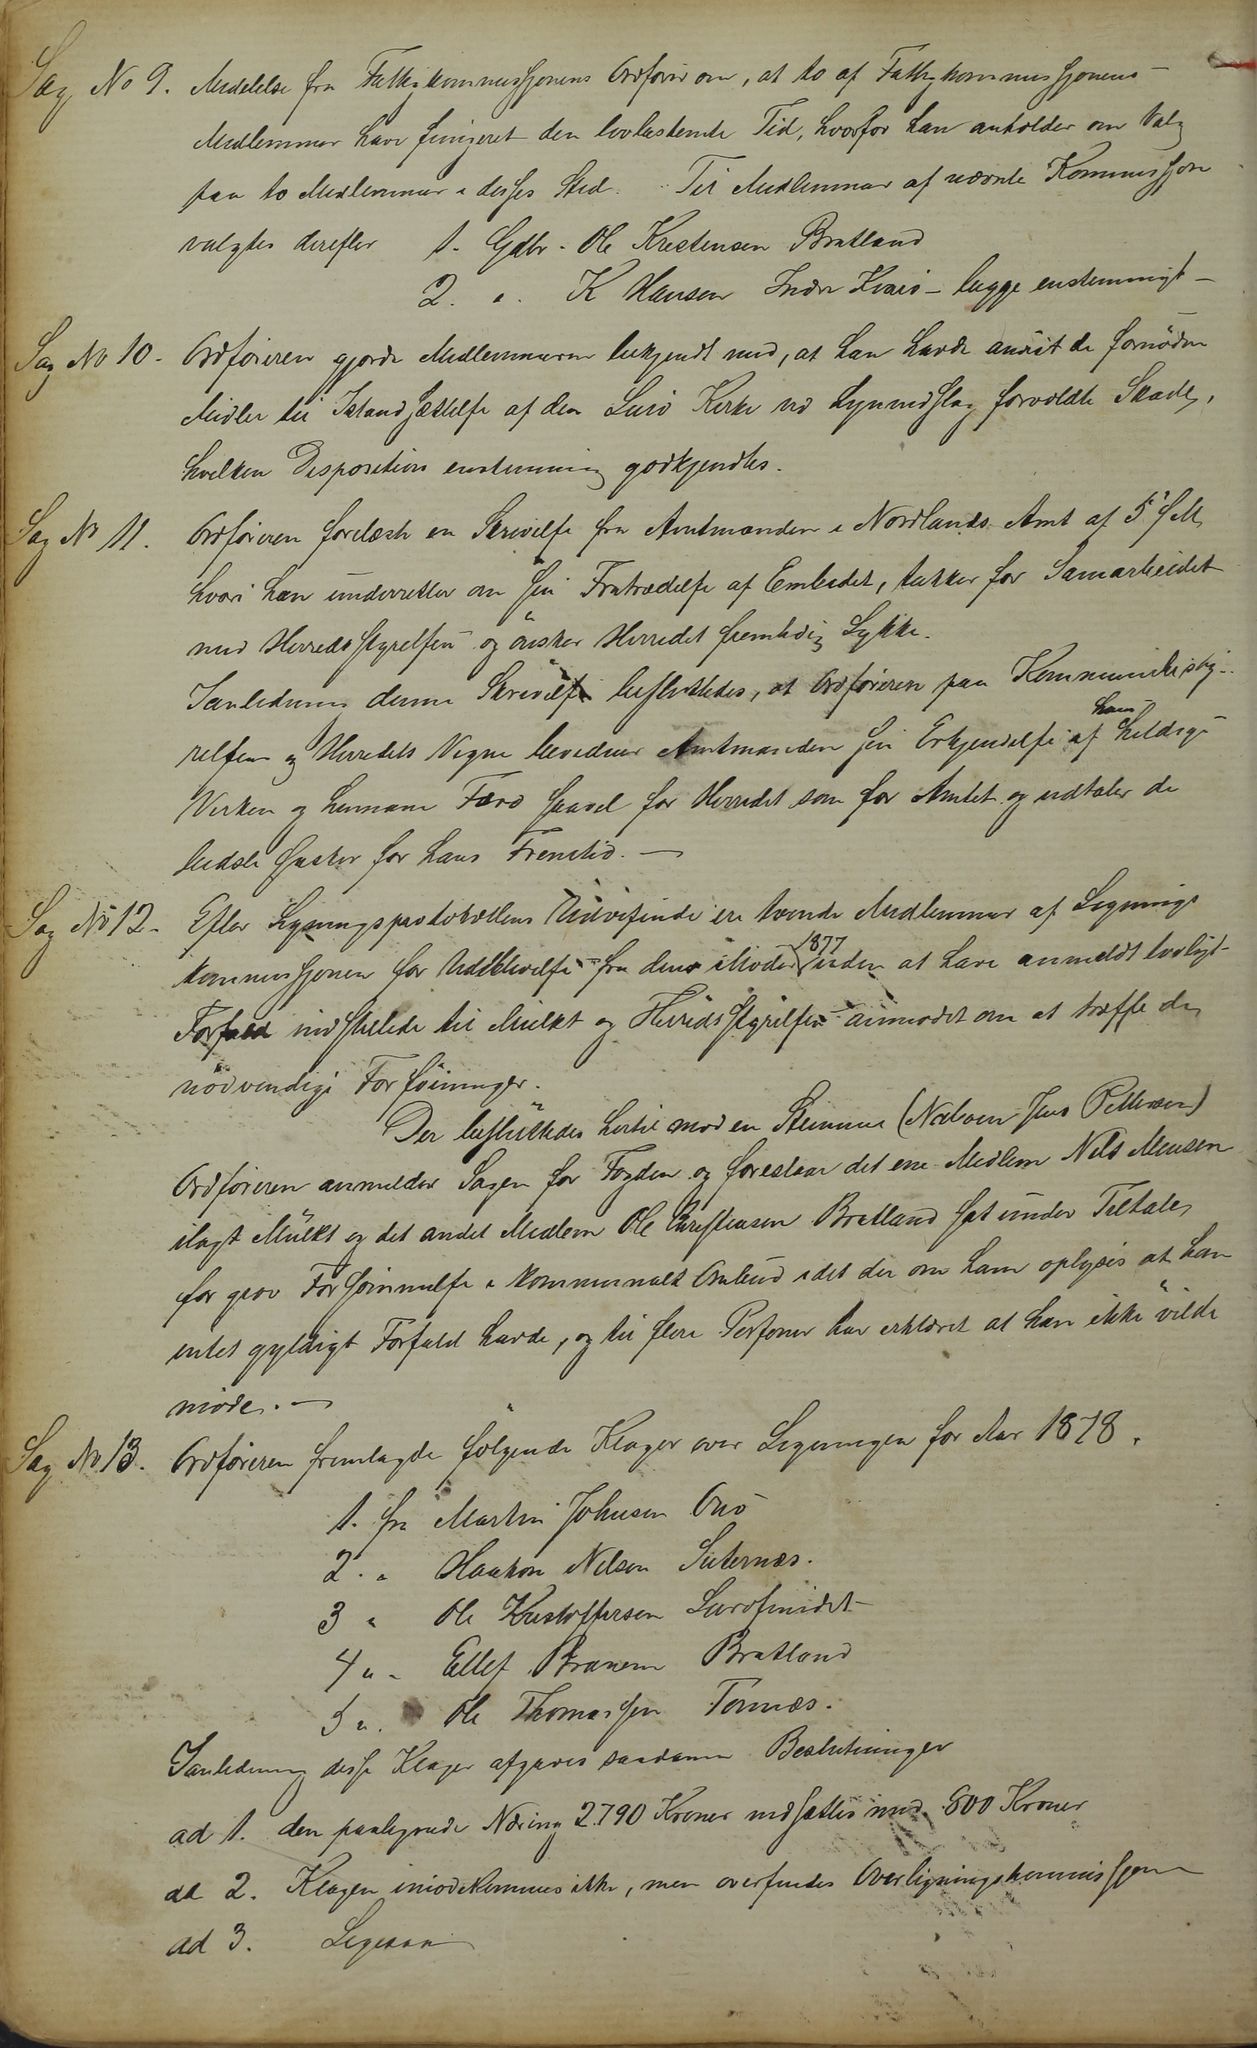 Sag No 9. Meddelelse fra Fattigkommissjonens Ordfører om, at to af Fattigkommissjonens
Medlemmer have fungeret den lovbestemte Tid, hvorfor han anholder om Valg
paa to Medlemmer i disses Sted. Til Medlemmer af nævnte Kommissjon
valgtes derefter 1. Gdbr. Ole Kristensen Bratland
2. " K Hansen Indre Kvarø – begge enstemmigt –
Sag No 10. Ordføreren gjorde Medlemmerne bekjendt med, at han havde anvist de fornødne
Midler til Istandsættelse af den Lurø Kirke ved Lynnedslag forvoldte Skade,
hvilken Disposition enstemmig godkjendtes.
Sag No 11. Ordføreren forelæste en Skrivelse fra Amtmanden i Nordlands Amt af 5 f M,
hvori han underretter om sin Fratrædelse af Embedet, takker for Samarbeidet
med Herredsstyrelsen og ønsker Herredet fremtidig Lykke.
I anledning denne Skrivelse besluttedes, at Ordføreren paa Kommunebesty-
relsens og Herredets Vegne bevidner Amtmanden sin Erkjendelse af hans heldige
Virken og humane Færd saavel for Herredet som for Amtet og udtaler de
bedste Ønsker for hans Fremtid. –
Sag No 12. Efter Ligningsprotokollens Udvisende ere tvende Medlemmer af Lignings
kommissjonen for Udeblivelse fra dens Møder 1877 uden at have anmeldt lovligt
Forfald indstillede til Mulkt og Herredsstyrelsen anmodet om at træffe de
nødvendige Forføininger.
Der besluttedes hertil mod en Stemme (Nabven Jens Pettersen)
Ordføreren anmelder Sagen for Fogden og foreslaar det ene Medlem Nils Monsen
ilagt Mulkt og det andet Medlem Ole Christensen Bratland sat under Tiltale
for grov Forsømmelse i kommunalt Ombud idet der om ham oplyses at han
intet gyldigt Forfald havde, og til flere Personer har erklæret at han ikke vilde
møde. –
Sag No 13. Ordføreren fremlagde følgende Klager over Ligningen for Aar 1878.
1. fra Martin Johnsen Onø
2. " Haakon Nilsen Suternæs.
3 " Ole Kristoffersen Lurøfmidet
4 " Ellef Pranem Bratland
5 " Ole Thomassen Tonnes.
I anledning disse Klager afgaves saadanne Beslutninger
ad 1. den paalignede Næring 2790 Kroner nedsættes med 500 Kroner
ad 2. Klagen imødekommes ikke, men oversendes Overligningskommissjonen
ad 3. Ligesaa